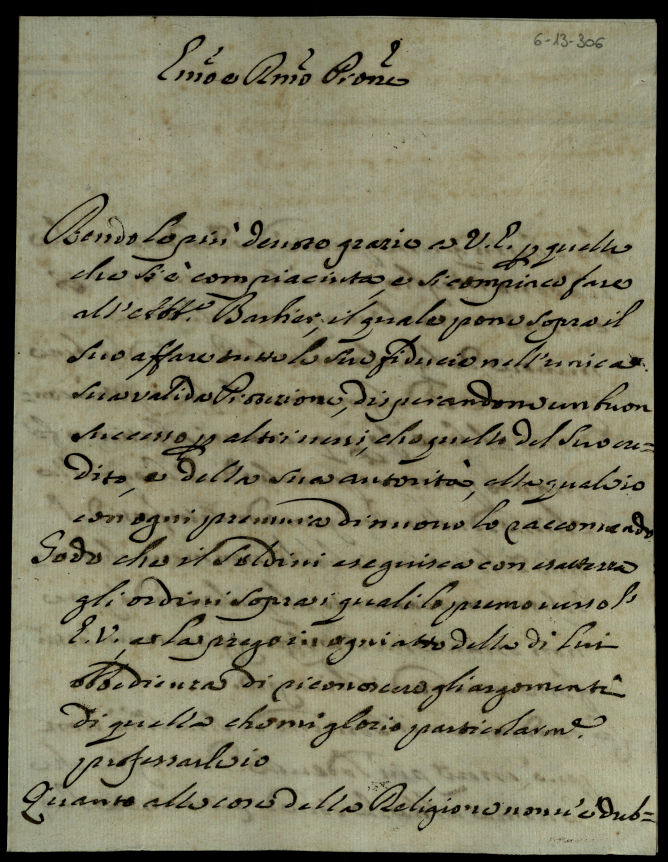 6-13-306
Em̃o e Rm̃o Prone
Rendo le più devote grazie a V.E. p quelle
che si è compiaciuta, e si compiace fare
all' Abb.e Barbier, il quale pone sopra il
suo affare tutta la sua fiducia nell'unica
sua valida Protezione, disperandone un buon
successo p altri mezi, che quelli del Suo cre=
dito, e della sua autorità, alla qual'io
con ogni premura di nuovo lo raccomando
Godo che il Soldini eseguisca con esattezza
gli ordini sopra i quali lo premo verso l'
E.V., e la prego in ogni atto della di lui
obbedienza di riconoscere gli argomenti
di quella che mi glorio particolarm.e
professarle io
Quanto alle cose della Religione non v'è dub=